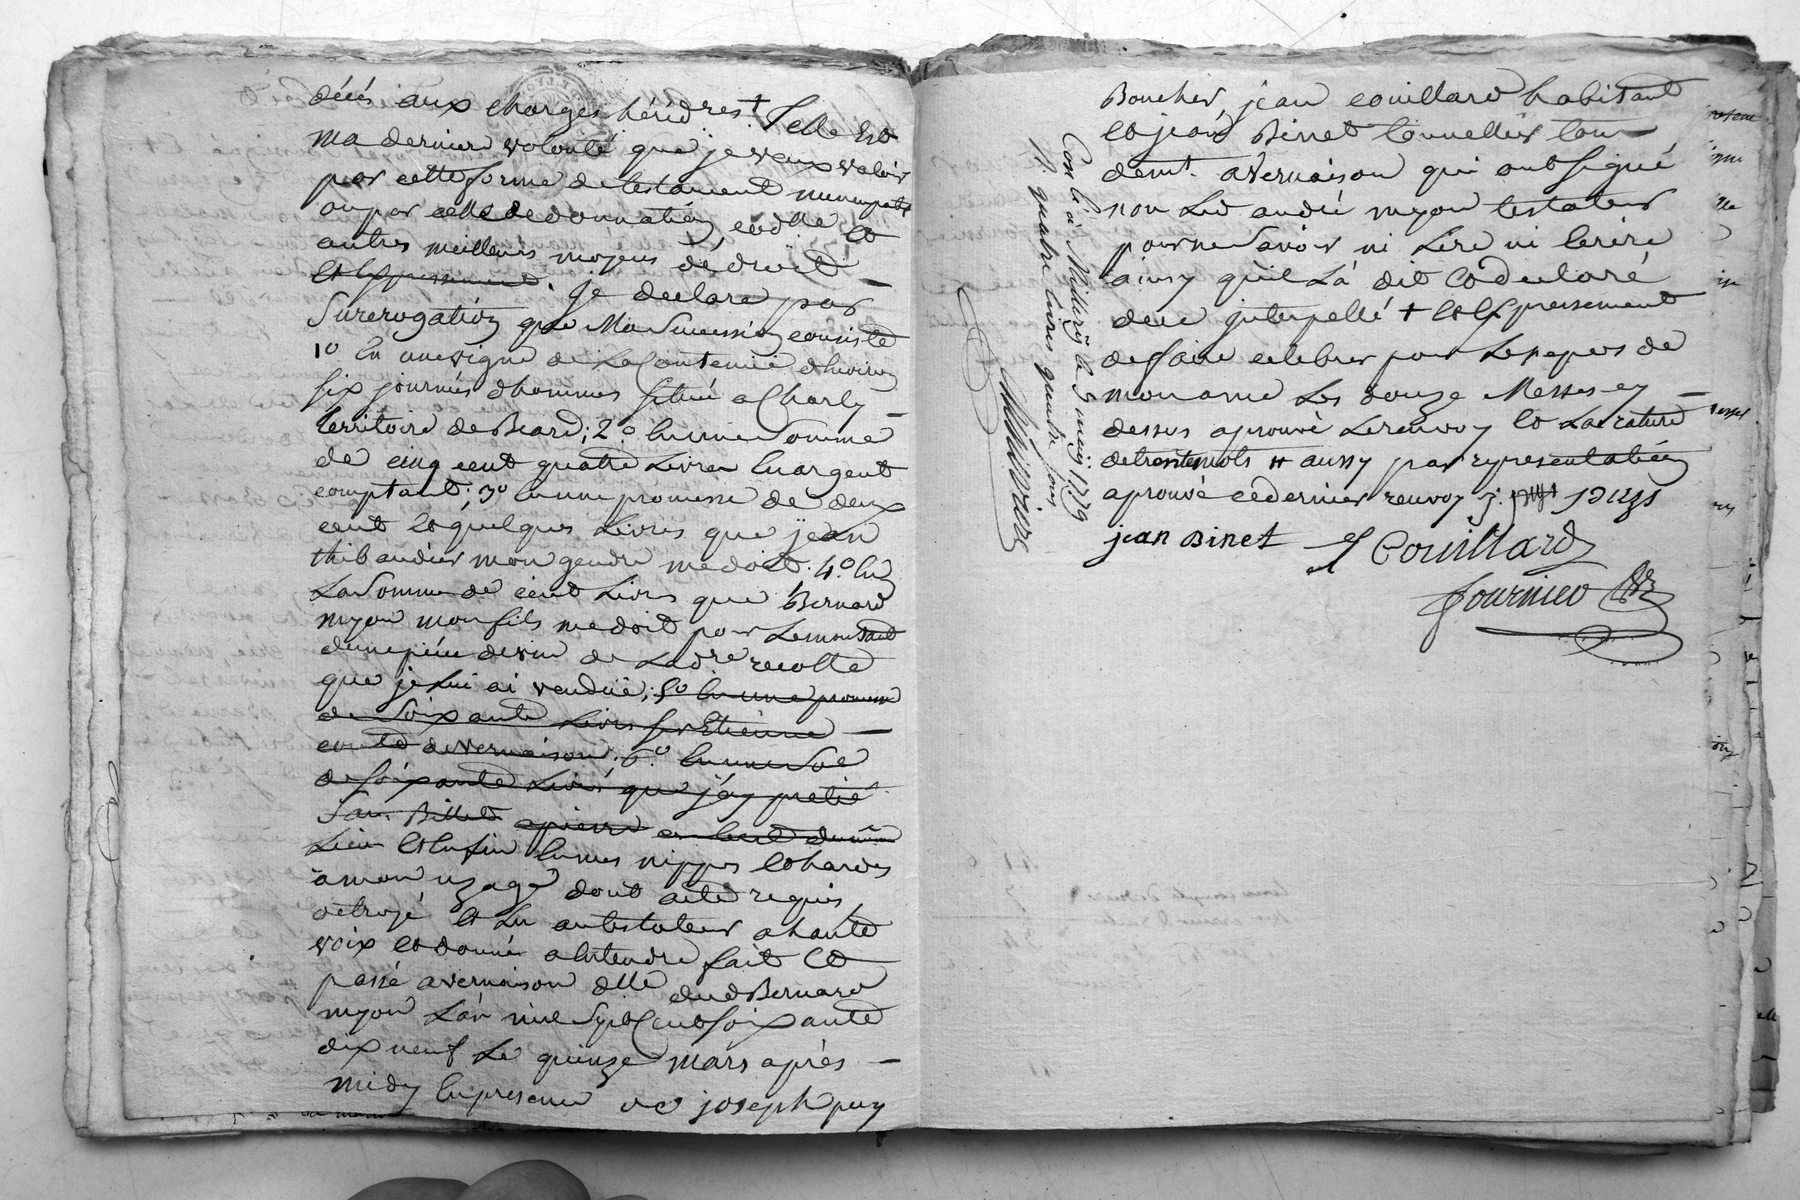 décès aux charges hérédres + Telle Est
ma dernier volonté que je veux valoir
par cette forme de testament nuncupatif
ou par celle de donnation, codlle et
autres meilleurs moyens de droit —
et expressement. Je declare par
Surerogation que Ma Succession consiste
1o En une vigne de La Contenue d'huiron
six journés d'hommes située a Charly —
territoire de Beard; 2o En une Somme
de cinq cent quatre Livres En argent
comptant; 3o En une promesse de deux
cent et quelques Livres que jean
thibaudier mon gendre me doit. 4o En
La Somme de cent Livres que Bernard
myon mon fils me doit pour Le montant
d'une piéce de vin de La dre recolte
que je Lui ai vendüe; 5o En une promesse
de Soixante Livres sur Etienne —
de vernaison; 6o En une Soe
de soixante Livres que j'ay pretté
Sans Billet a pierre du même
Lieu Et Enfin En mes nippes Et hardes
a mon uzage dont acte requis,
octroyé et Lu au testateur a haute
voix et donné a Entendre fait Et
passé a vernaison dlle dud Bernard
myon L'an mil Sept Cent soixante
dix neuf Le quinze mars après —
midy En presence de joseph puy
Boucher, jean couillard habitant
et jean Binet tonnellier tous
demt. a vernaison qui ont signé
non Led andré myon testateur
pour ne Savoir ni Lire ni Ecrire
ainsy qu'il L'a dit et declaré
de ce jnterpellé + et Expressement
de faire celebrer pour Le repos de
mon ame Les douze Messes cy —
dessus aprouvé Le renvoy et La rature
de trente mots # aussy par representation
aprouvé ce dernier renvoy j. puys
jean Binet J Couillard
fournier
Con lé à Millery le 5 may 1779
R. quatre livres quatre sous